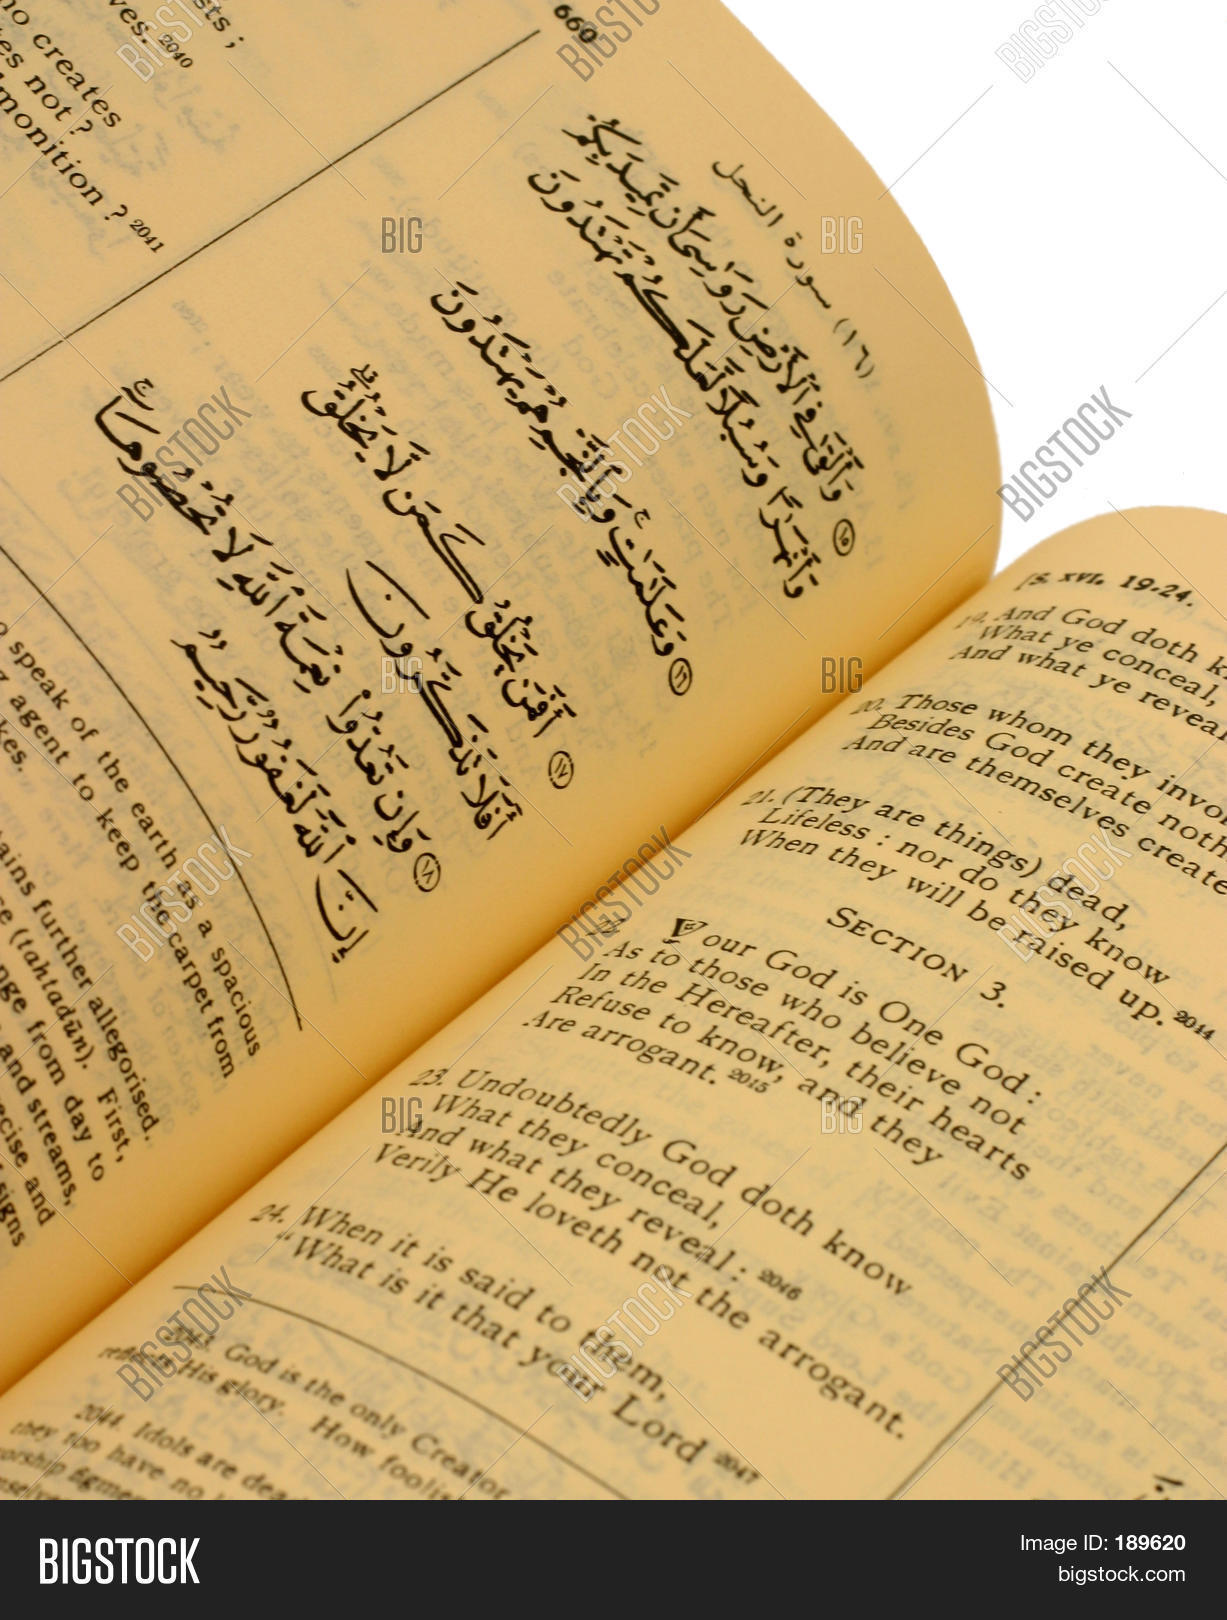 660
sts ;
ves. 2040
no creates
es not ?
monition ? 2041
سورة النحل (١٦)
١٥ وَأَلْقَىٰ فِي ٱلْأَرْضِ رَوَٰسِيَ أَن تَمِيدَ بِكُمْ
وَأَنْهَٰرًا وَسُبُلًا لَّعَلَّكُمْ تَهْتَدُونَ
١٦ وَعَلَٰمَٰتٍ ۚ وَبِٱلنَّجْمِ هُمْ يَهْتَدُونَ
١٧ أَفَمَن يَخْلُقُ كَمَن لَّا يَخْلُقُ ۗ
أَفَلَا تَذَكَّرُونَ
١٨ وَإِن تَعُدُّوا۟ نِعْمَةَ ٱللَّهِ لَا تُحْصُوهَآ ۚ
إِنَّ ٱللَّهَ لَغَفُورٌ رَّحِيمٌ
o speak of the earth as a spacious
g agent to keep the carpet from
kes.
ains further allegorised.
ce (tahtadūn). First,
nge from day to
and streams,
ecise and
signs
[S. XVI. 19-24.
19. And God doth k
What ye conceal,
And what ye reveal
20. Those whom they invo
Besides God create noth
And are themselves create
21. (They are things) dead,
Lifeless : nor do they know
When they will be raised up. 2044
SECTION 3.
22. Your God is One God :
As to those who believe not
In the Hereafter, their hearts
Refuse to know, and they
Are arrogant. 2015
23. Undoubtedly God doth know
What they conceal,
And what they reveal : 2046
Verily He loveth not the arrogant.
24. When it is said to them,
"What is it that your Lord 2047
2043. God is the only Creator
reflects His glory. How foolis
2044. Idols are dea
they too have no
orship figmen
mselve
BIGSTOCK
Image ID: 189620
bigstock.com